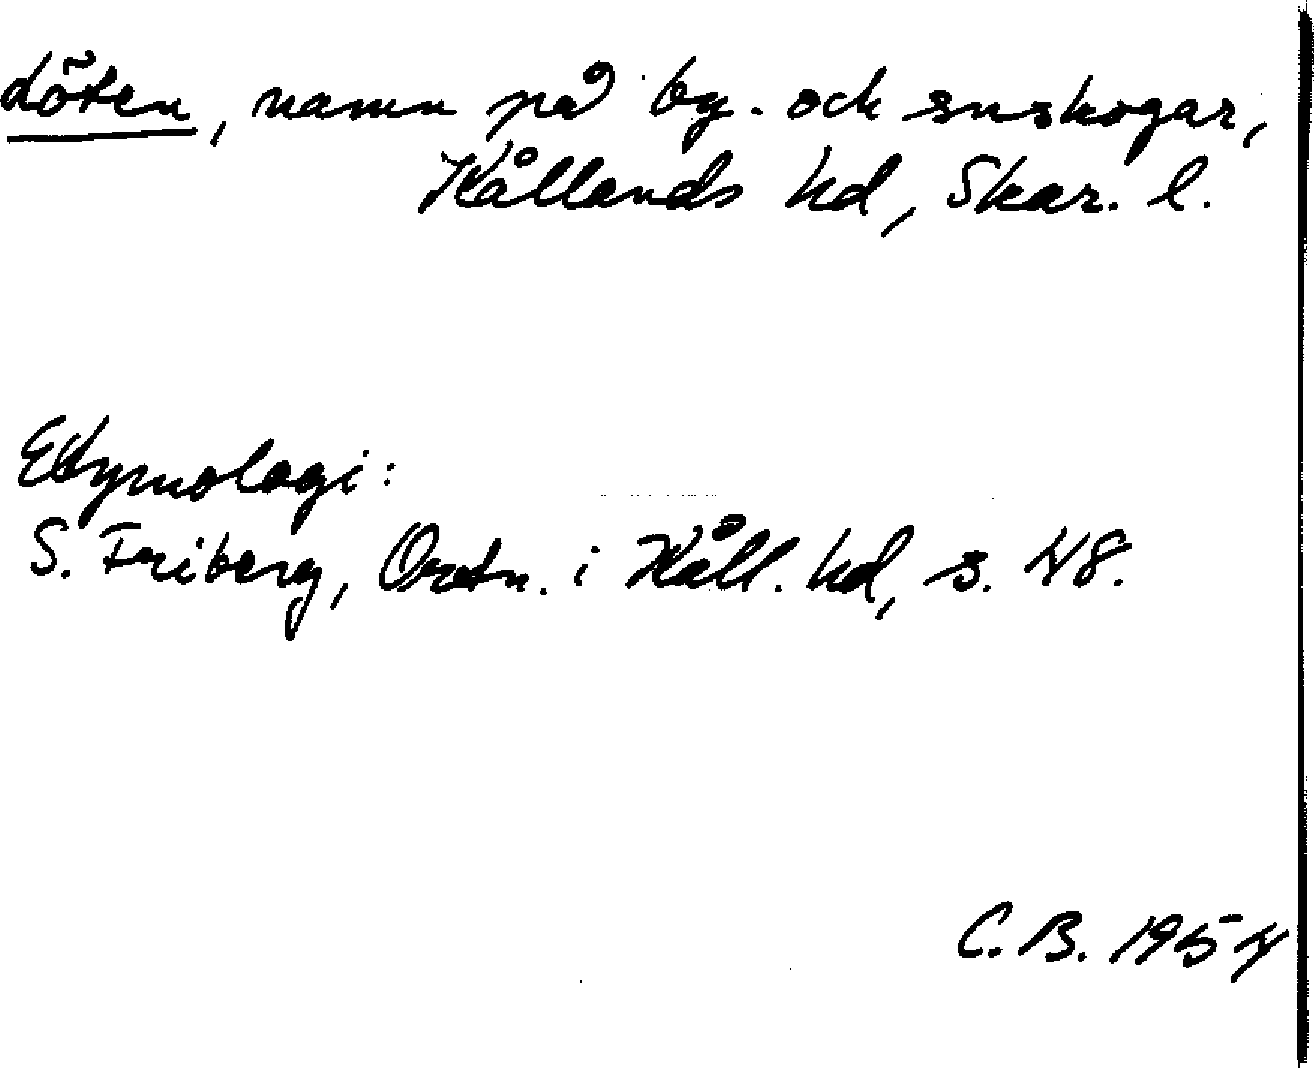 Löten, namn på by- och snskogar,
Kållands hd, Skar. l.
Etymologi:
S. Friberg, Ortn. i Kåll. hd, s. 48.
C. B. 1954